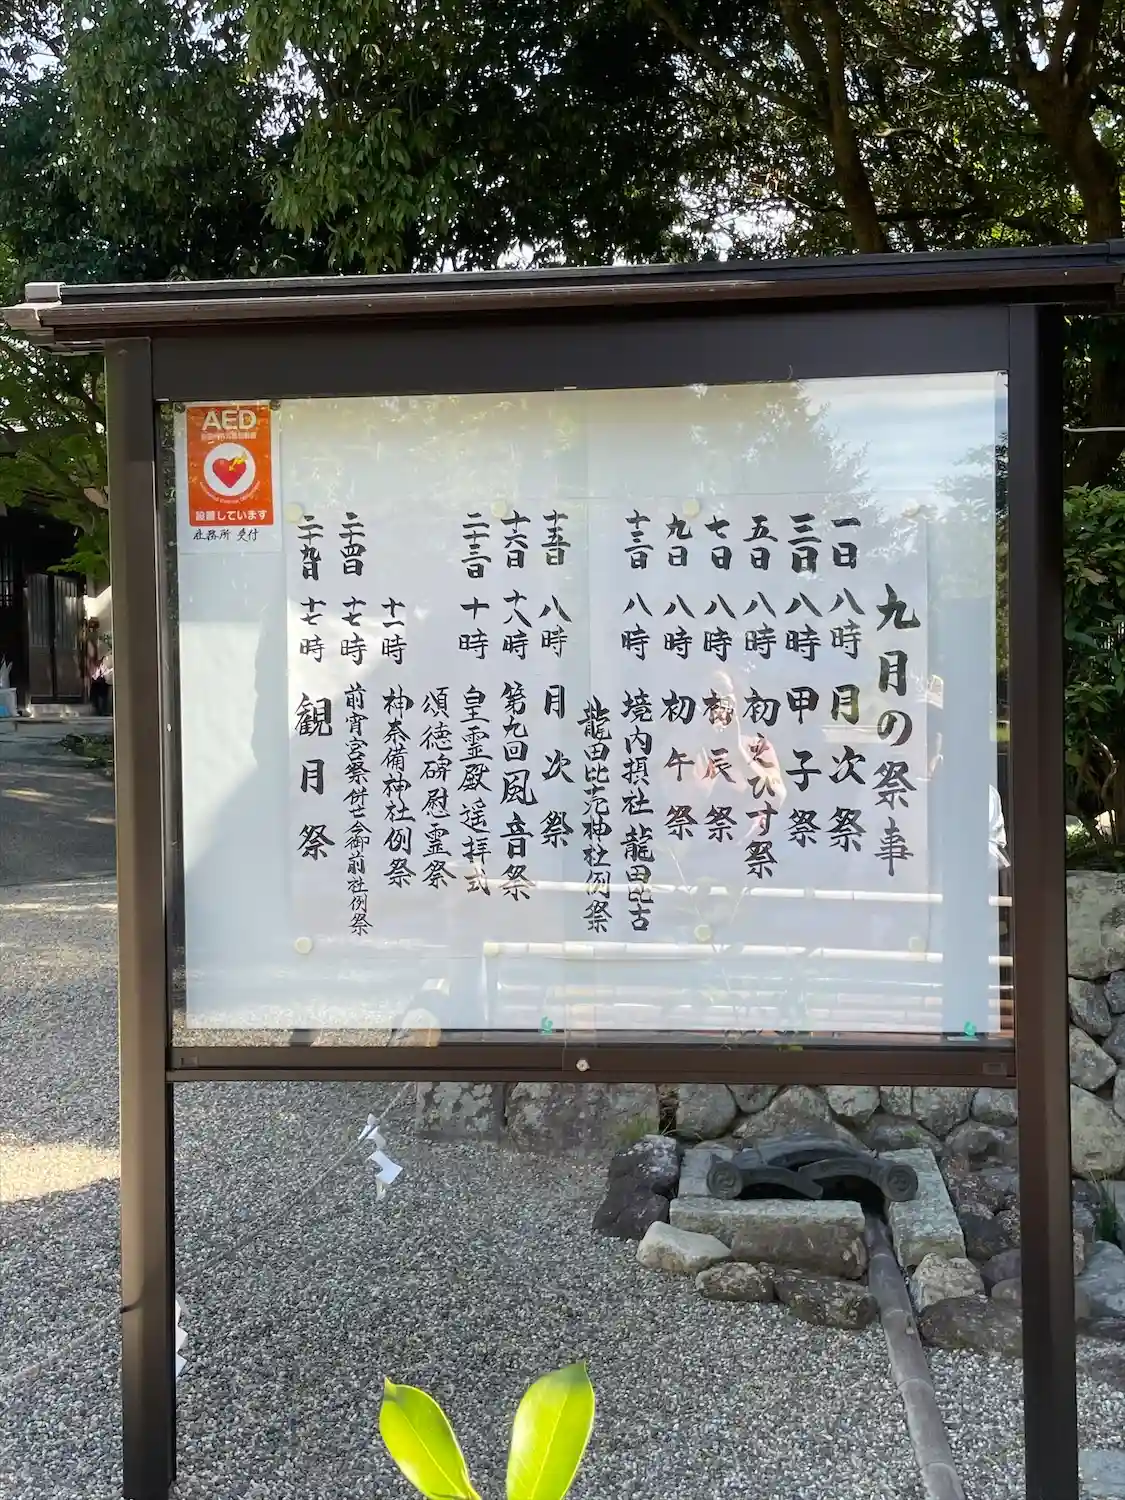 九月の祭事
一日 八時 月次祭
三日 八時 甲子祭
五日 八時 初ゑびす祭
七日 八時 初辰祭
九日 八時 初午祭
十三日 八時 境内摂社 龍田比古
龍田比売神社例祭
十五日 八時 月次祭
十六日 十八時 第九回風音祭
二十三日 十時 皇霊殿遥拝式
頌徳碑慰霊祭
十一時 神奈備神社例祭
二十四日 十七時 前宵宮祭併せ会御前社例祭
二十九日 十七時 観月祭
AED
設置しています
社務所 受付